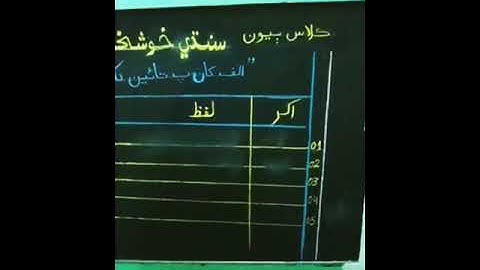 ڪلاس ٻيون سنڌي خوشخ
"الف کان ب تائين
اکر لفظ
01
02
03
04
05